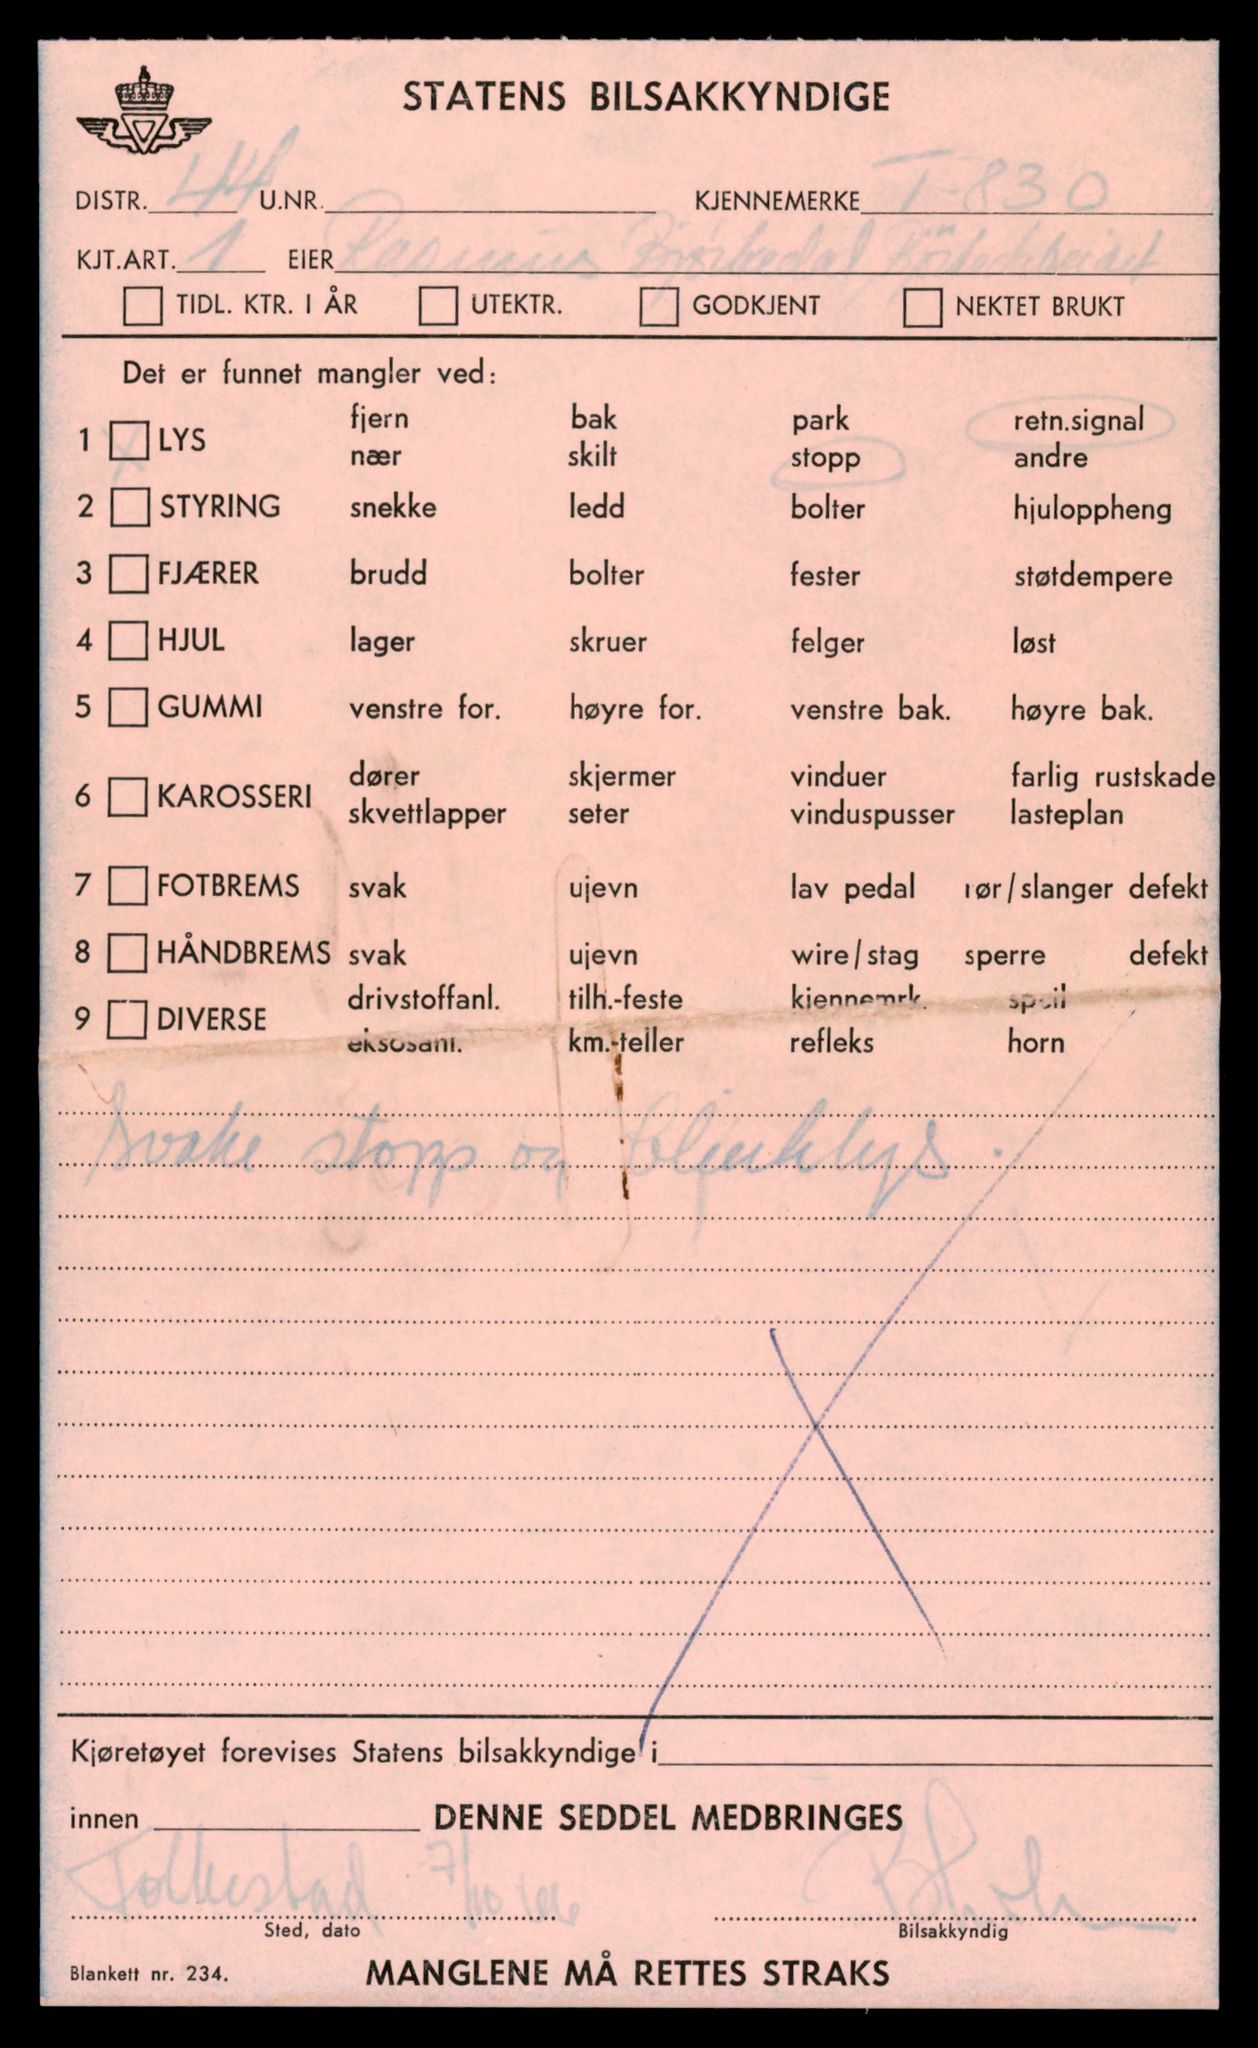 STATENS BILSAKKYNDIGE
DISTR. 44 U.NR. KJENNEMERKE T-830
KJT.ART. 1 EIER Rasmus Bjørkedal
TIDL. KTR. I ÅR UTEKTR. GODKJENT NEKTET BRUKT
Det er funnet mangler ved:
1 LYS fjern bak park retn.signal
nær skilt stopp andre
2 STYRING snekke ledd bolter hjuloppheng
3 FJÆRER brudd bolter fester støtdempere
4 HJUL lager skruer felger løst
5 GUMMI venstre for. høyre for. venstre bak. høyre bak.
6 KAROSSERI dører skjermer vinduer farlig rustskade
skvettlapper seter vinduspusser lasteplan
7 FOTBREMS svak ujevn lav pedal rør/slanger defekt
8 HÅNDBREMS svak ujevn wire/stag sperre defekt
9 DIVERSE drivstoffanl. tilh.-feste kjennemrk. speil
eksosanl. km.-teller refleks horn
Svake stopp og blinklys.
Kjøretøyet forevises Statens bilsakkyndige i
innen DENNE SEDDEL MEDBRINGES
Folkestad 7/10 66
Sted, dato Bilsakkyndig
Blankett nr. 234. MANGLENE MÅ RETTES STRAKS